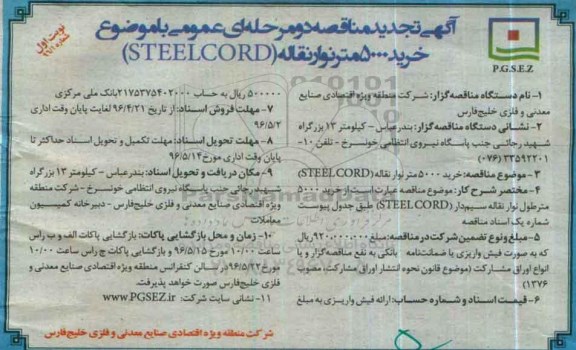 آگهی تجدید مناقصه دو مرحله‌ای عمومی با موضوع
خرید ۵۰۰۰ متر نوار نقاله (STEELCORD)
نوبت اول
P.G.S.E.Z
۱- نام دستگاه مناقصه گزار: شرکت منطقه ویژه اقتصادی صنایع
معدنی و فلزی خلیج فارس
۲- نشانی دستگاه مناقصه گزار: بندرعباس - کیلومتر ۱۳ بزرگراه
شهید رجائی جنب پاسگاه نیروی انتظامی خونسرخ - تلفن ۱۰-
۳۳۵۹۲۲۰۱ (۰۷۶)
۳- موضوع مناقصه: خرید ۵۰۰۰ متر نوار نقاله (STEELCORD)
۴- مختصر شرح کار: موضوع مناقصه عبارت است از خرید ۵۰۰۰
متر طول نوار نقاله سیم‌دار (STEELCORD) طبق جدول پیوست
شماره یک اسناد مناقصه
۵- مبلغ و نوع تضمین شرکت در مناقصه: مبلغ ۹۲۰,۰۰۰,۰۰۰ ریال
که به صورت فیش واریزی یا ضمانتنامه بانکی به نفع مناقصه گزار و یا
انواع اوراق مشارکت (موضوع قانون نحوه انتشار اوراق مشارکت، مصوب
۱۳۷۶)
۶- قیمت اسناد و شماره حساب: ارائه فیش واریزی به مبلغ
۵۰۰۰۰۰ ریال به حساب ۲۱۷۵۳۷۵۴۰۲۰۰۰ بانک ملی مرکزی
۷- مهلت فروش اسناد: از تاریخ ۹۶/۴/۲۱ لغایت پایان وقت اداری
۹۶/۵/۲
۸- مهلت تحویل اسناد: مهلت تکمیل و تحویل اسناد حداکثر تا
پایان وقت اداری مورخ ۹۶/۵/۱۴
۹- مکان دریافت و تحویل اسناد: بندرعباس - کیلومتر ۱۳ بزرگراه
شهید رجائی جنب پاسگاه نیروی انتظامی خونسرخ - شرکت منطقه
ویژه اقتصادی صنایع معدنی و فلزی خلیج فارس - دبیرخانه کمیسیون
معاملات
۱۰- زمان و محل بازگشایی پاکات: بازگشایی پاکات الف و ب راس
ساعت ۱۰/۰۰ مورخ ۹۶/۵/۱۵ و بازگشایی پاکات ج راس ساعت ۱۰/۰۰
مورخ ۹۶/۵/۲۲ در سالن کنفرانس منطقه ویژه اقتصادی صنایع معدنی و
فلزی خلیج فارس صورت خواهد پذیرفت.
۱۱- نشانی سایت شرکت: www.PGSEZ.ir
شرکت منطقه ویژه اقتصادی صنایع معدنی و فلزی خلیج فارس